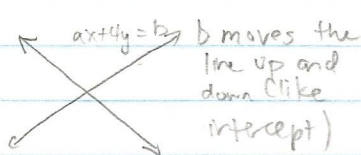 ax+4y=b
b moves the
line up and
down (like
intercept)